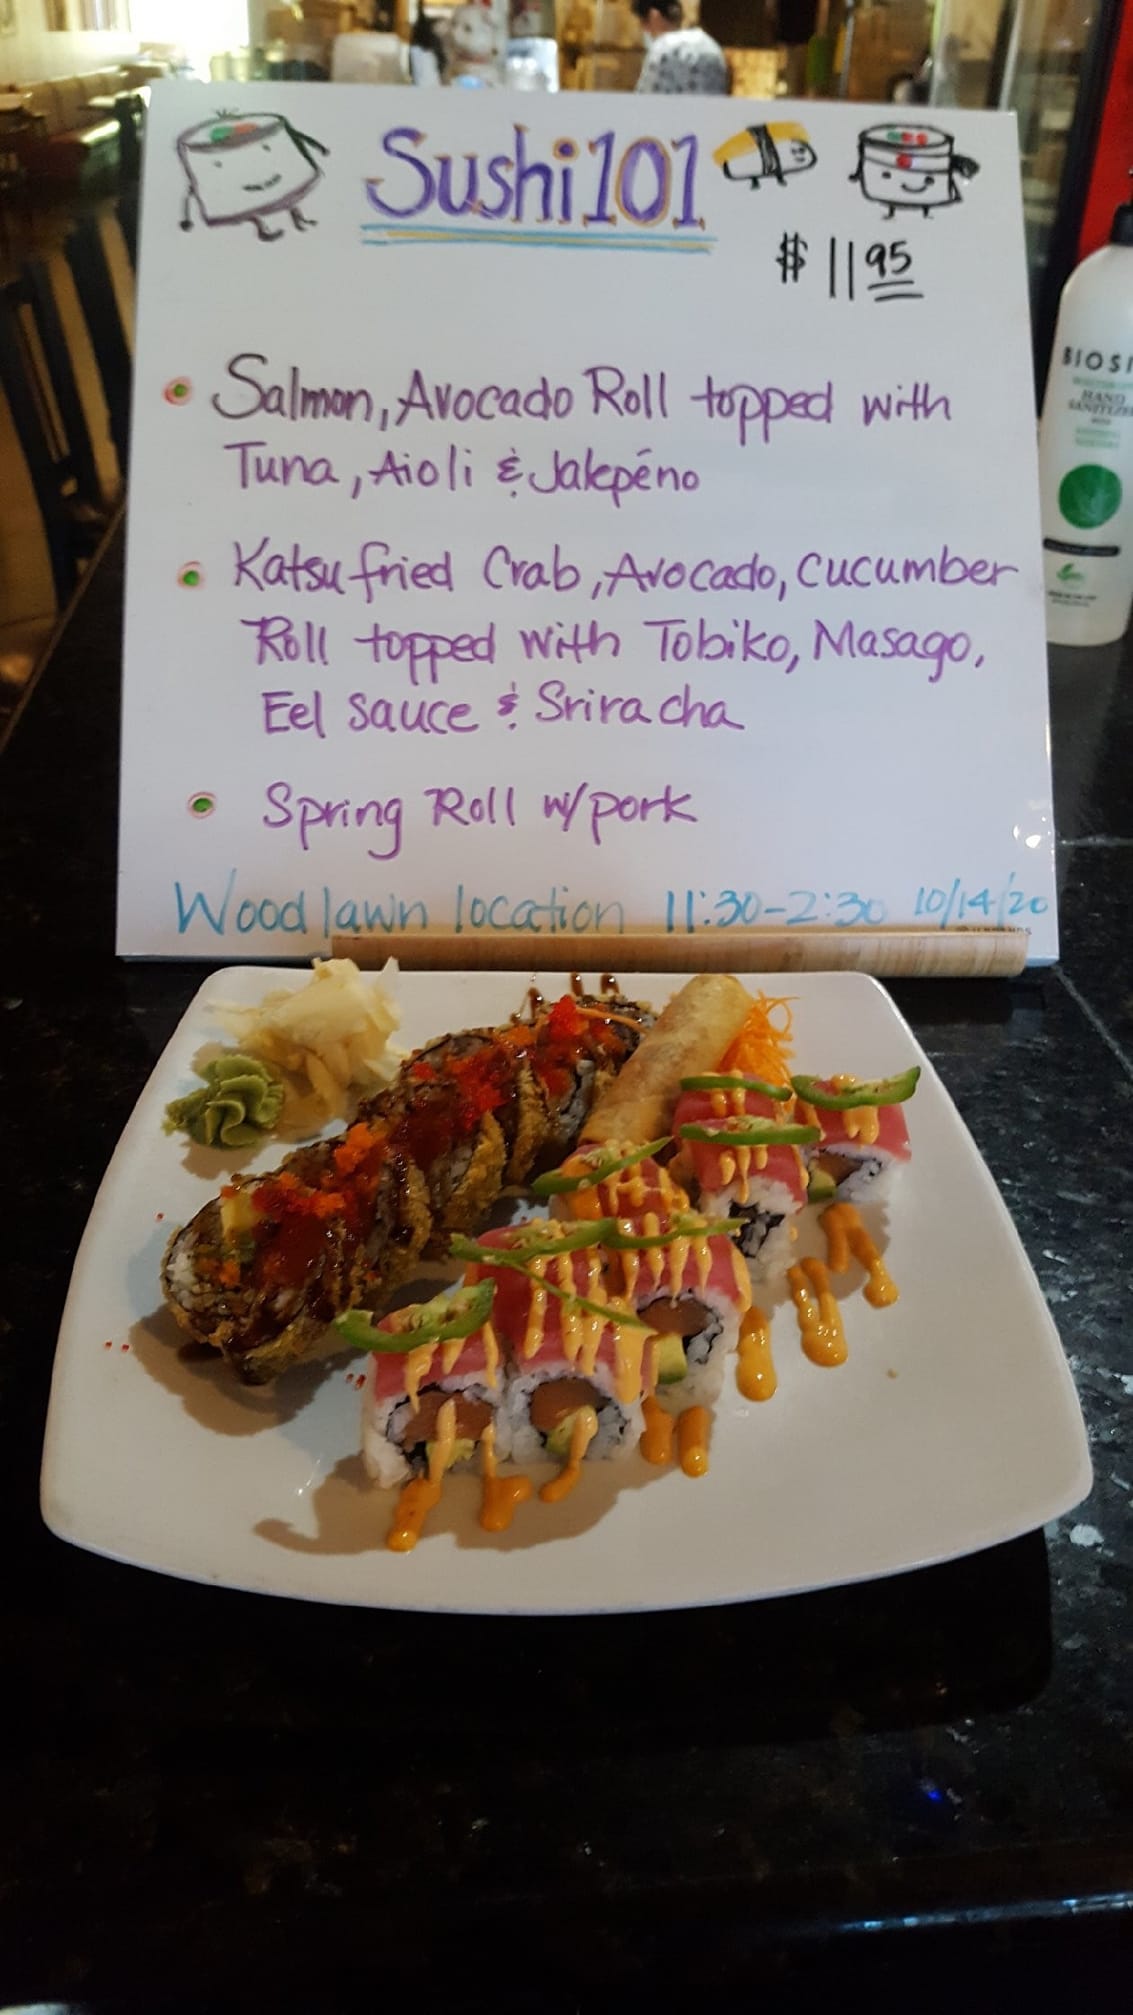 Sushi 101
$ 11 95
• Salmon, Avocado Roll topped with
Tuna, Aioli & Jalepéno
• Katsu fried Crab, Avocado, Cucumber
Roll topped with Tobiko, Masago,
Eel Sauce & Sriracha
• Spring Roll w/pork
Woodlawn location 11:30-2:30 10/14/20
BIOSI
HAND
SANITIZE